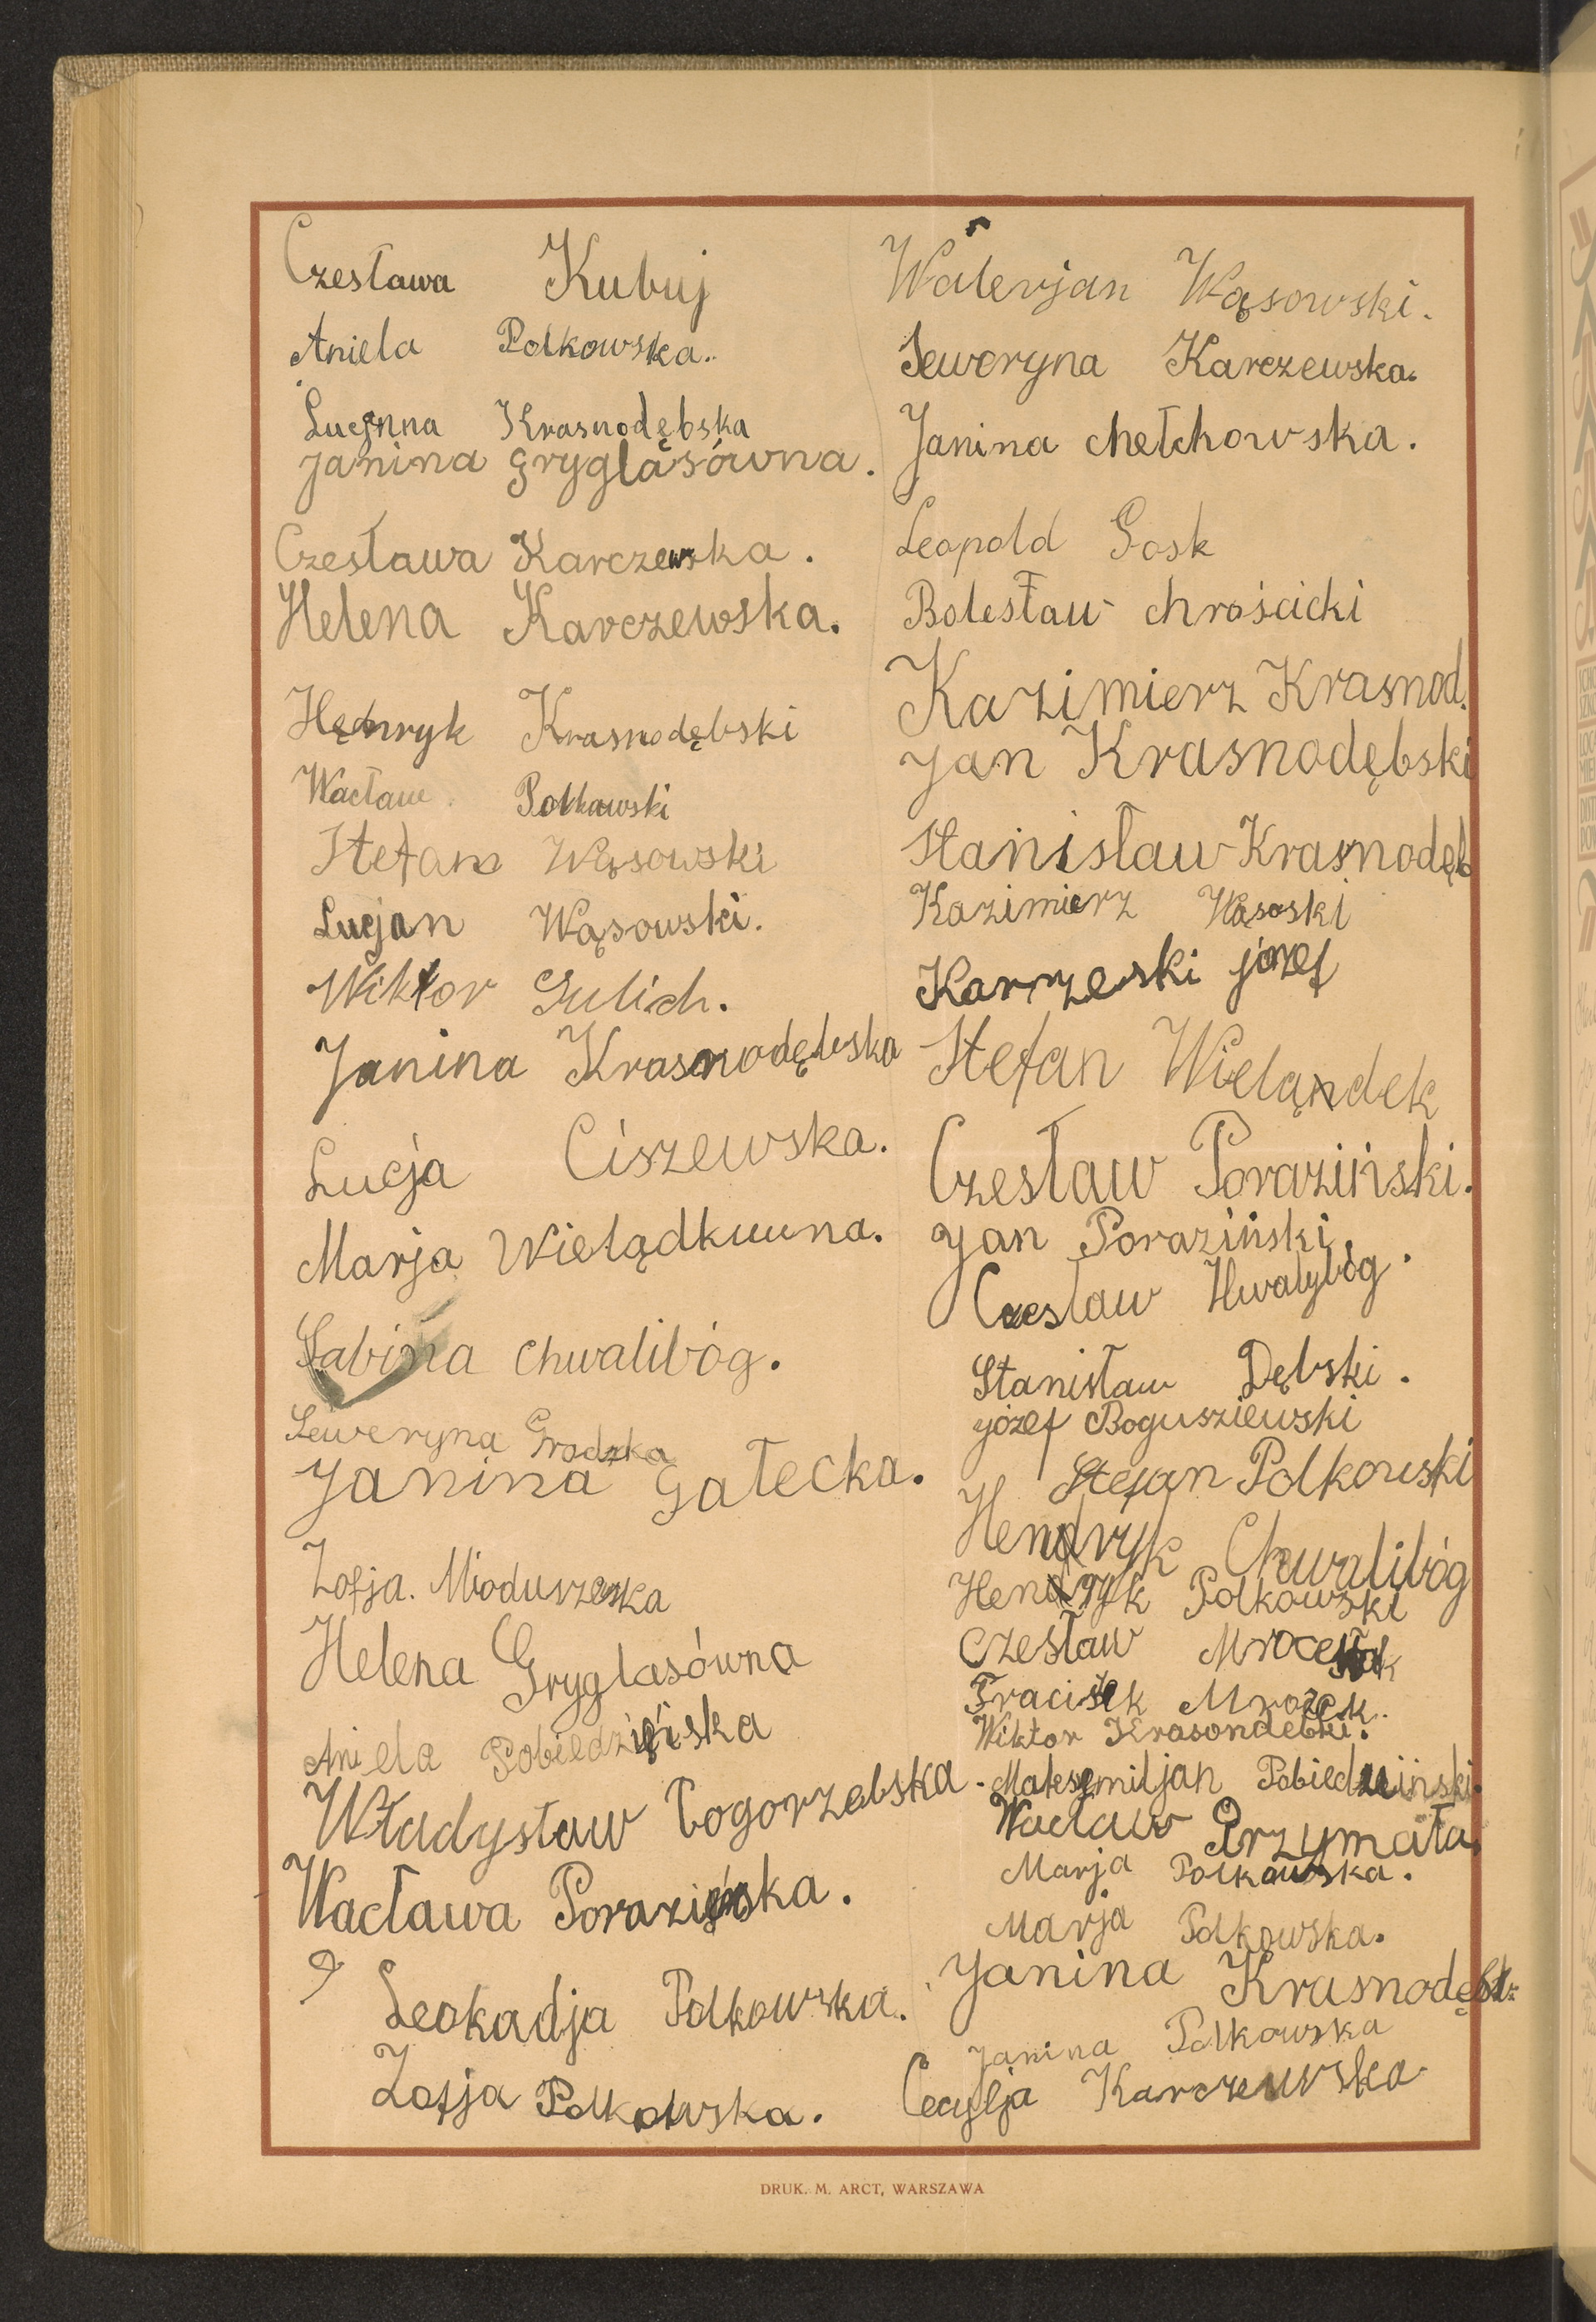 Czesława Kubuj
Aniela Polkowska..
Lucynna Krasnodębska
Janina Gryglasówna.
Czesława Karczewska.
Helena Karczewska.
Henryk Krasnodębski
Wacław Polkowski
Stefan Wąsowski
Lucjan Wąsowski.
Wiktor Gulich.
Janina Krasnodębska
Lucja Ciszewska.
Marja Wielądkuwna.
Sabina Chwalibóg.
Seweryna Grodzka
Janina Gałecka.
Zofja. Mioduszeska
Helena Gryglasówna
Aniela Pobiedzińska
Władysław Pogorzebska
Wacława Porazińska.
Leokadja Polkowska.
Zofja Polkowska.
Walerjan Wąsowski.
Seweryna Karczewska.
Janina chełchowska.
Leopold Gosk
Bolesław chrościcki
Kazimierz Krasnod.
Jan Krasnodębski
Stanisław Krasnodęb
Kazimierz Wąsoski
Karczeski józef
Stefan Wielądek
Czesław Poraziński.
Jan Poraziński.
Czesław Hwalybóg.
Stanisław Dębski.
józef Bogusziewski
Stefan Polkowski
Henryk Chwalibóg
Henryk Polkowski
Czesław
Fraciszek Mrozek.
Wiktor Krasondebki.
Maksymiljan Pobiedziński.
Wacław Przymała.
Marja Polkowska.
Marja Polkowska.
Janina Krasnodębs.
Janina Polkowska
Cecylja Karczewska
DRUK. M. ARCT, WARSZAWA